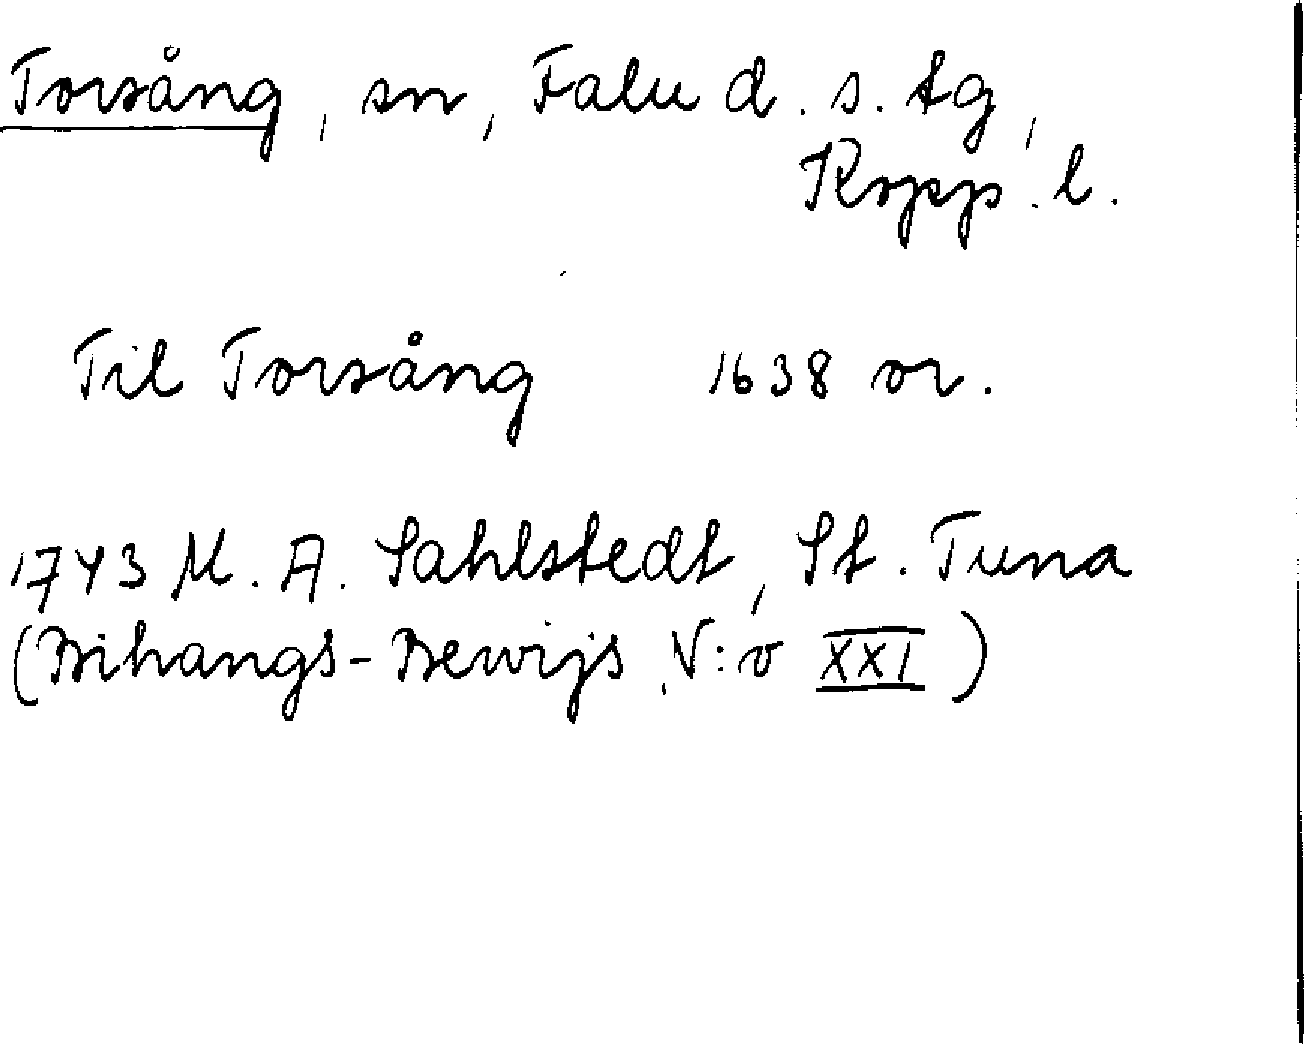 Torsång, sn, Falu d. s. tg,
Kopp. l.
Til Torsång 1638 or.
1743 M. A. Sahlstedt, St. Tuna
(Bihangs-Bewijs, N:o XXI)